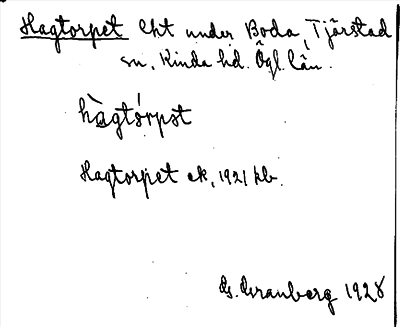 Hagtorpet lht under Boda, Tjärstad
sn, Kinda hd. Ögl. län.
hàgtórpət
Hagtorpet ek, 1921 kb.
G. Granberg 1928